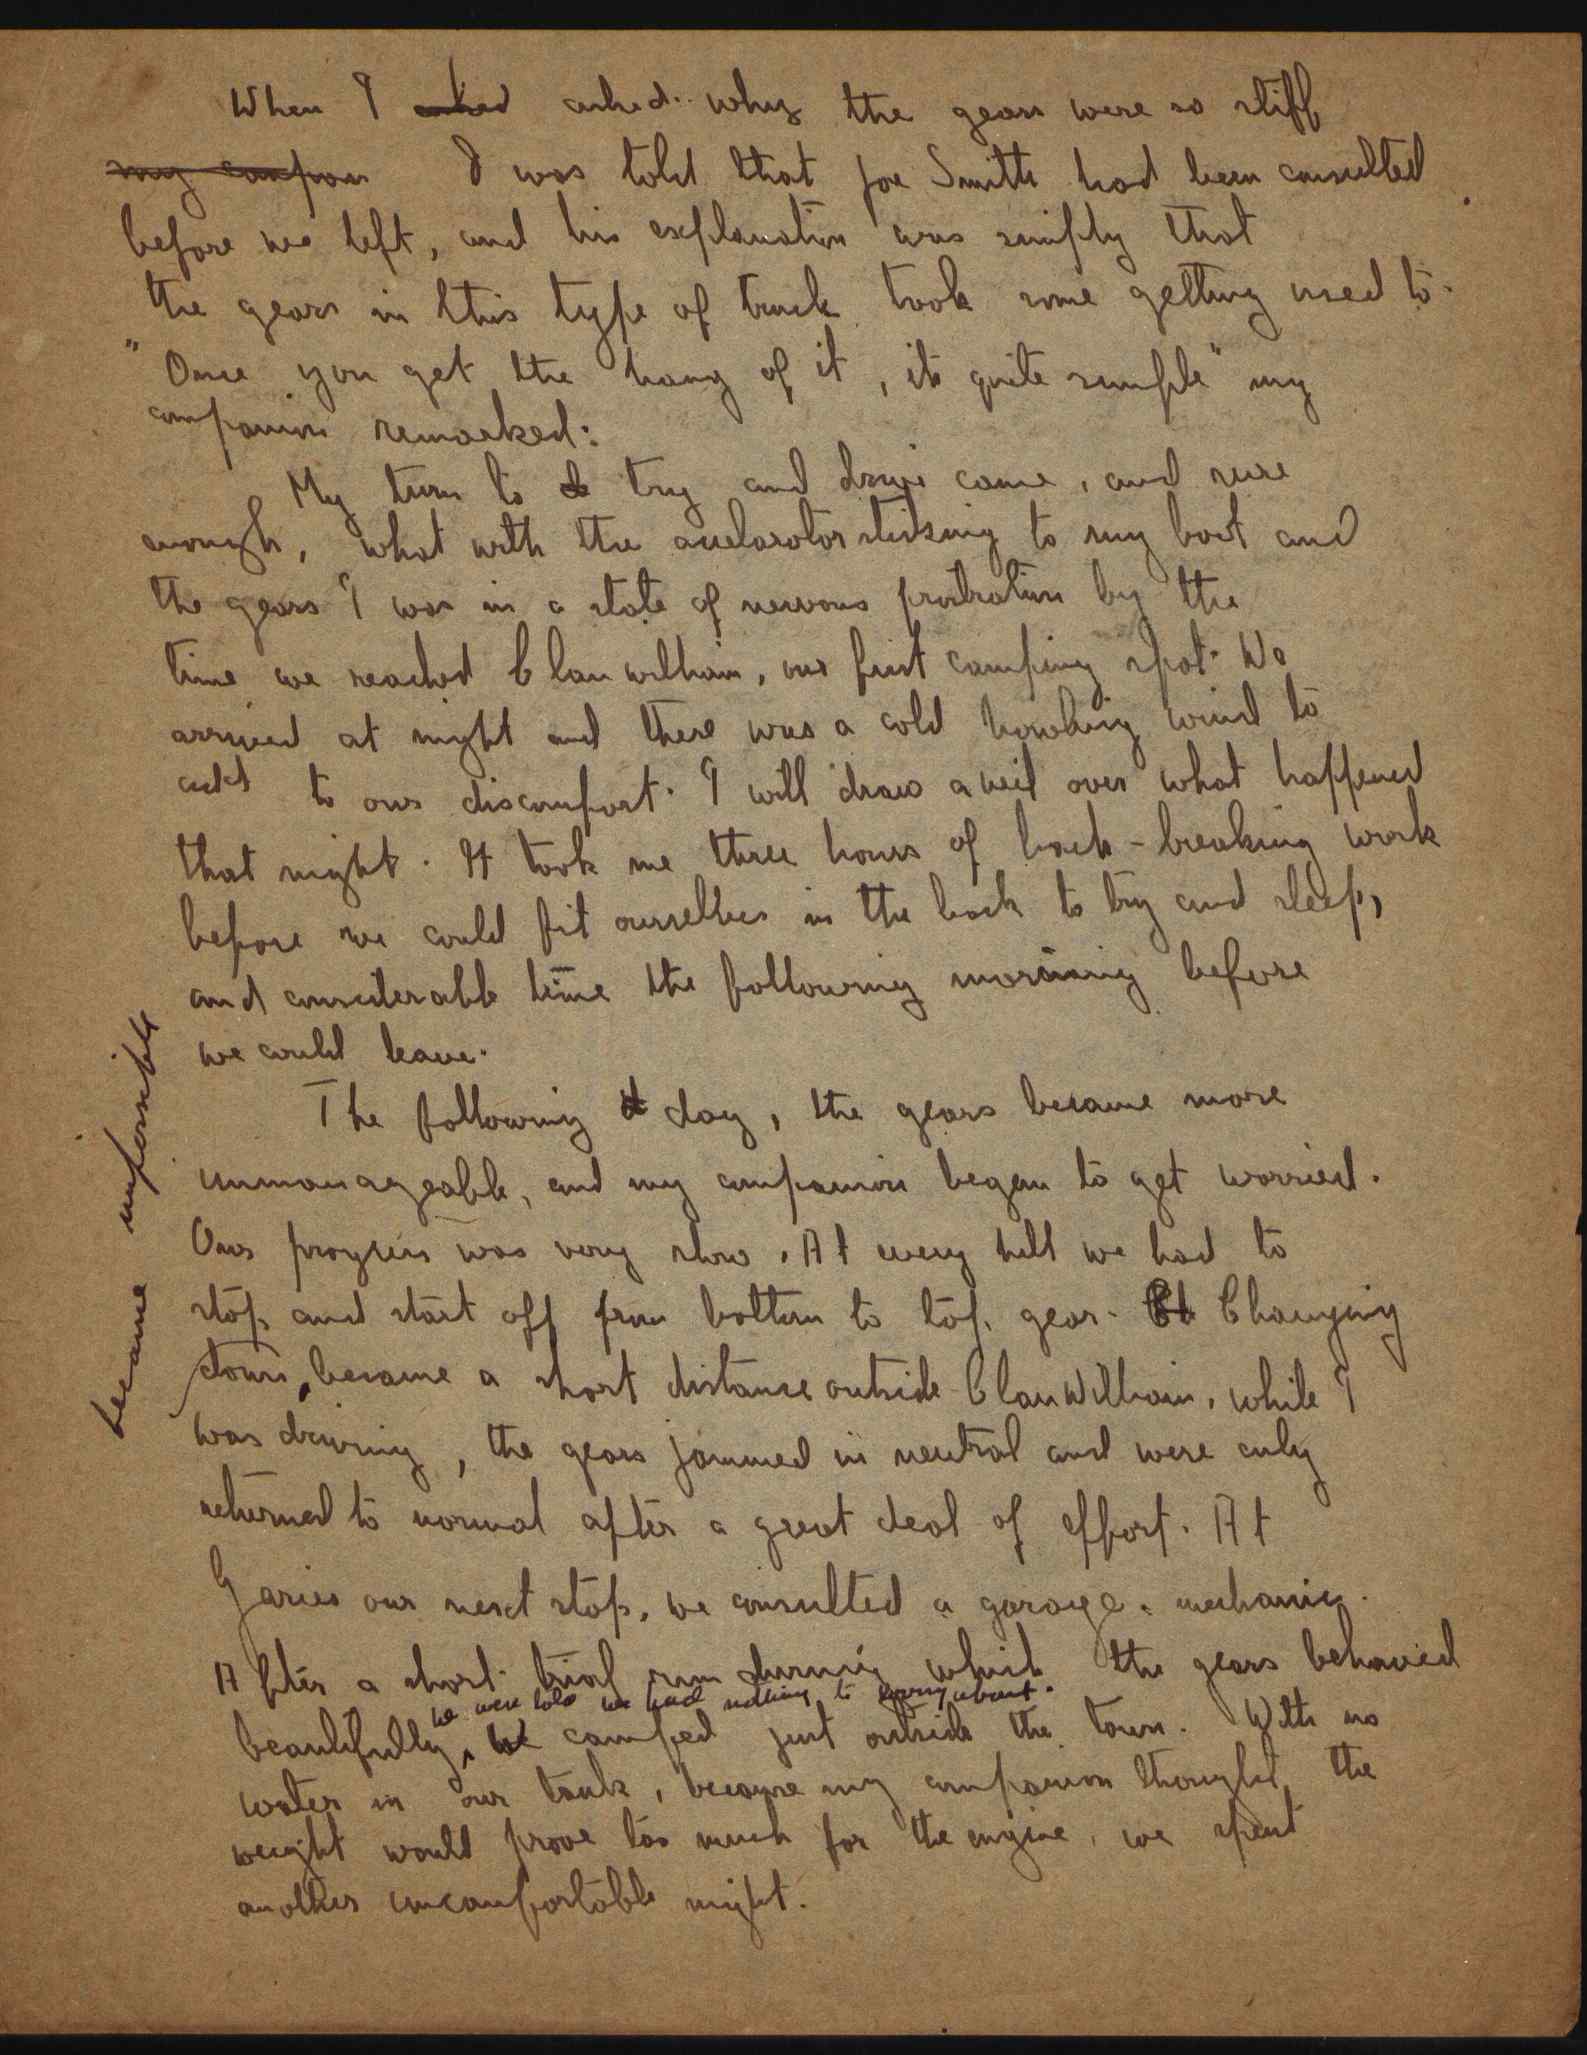 When I asked asked why the gears were so stiff
my compan I was told that Joe Smith had been consulted
before we left, and his explanation was simply that
the gears in this type of truck took some getting used to.
"Once you get the hang of it, its quite simple" my
companion remarked:
My turn to try and drive came, and sure
enough, what with the accelarator sticking to my boot and
the gears I was in a state of nervous prostration by the
time we reached Clanwilliam, our first camping spot. We
arrived at night and there was a cold howling wind to
add to our discomfort. I will draw a veil over what happened
that night. It took me three hours of back-breaking work
before we could fit ourselves in the back to try and sleep,
and considerable time the following morning before
we could leave.
The following day, the gears became more
unmanageable, and my companion began to get worried.
Our progress was very slow. At every hill we had to
stop and start off from bottom to top gear. Changing
down, became a short distance outside ClanWilliam, while I
became impossible
was driving, the gears jammed in neutral and were only
returned to normal after a great deal of effort. At
Garies our next stop, we consulted a garage mechanic.
After a short trial run during which the gears behaved
we were told we had nothing to worry about.
beautifully, We camped just outside the town. With no
water in our tank, because my companion thought the
weight would prove too much for the engine, we spent
another uncomfortable night.